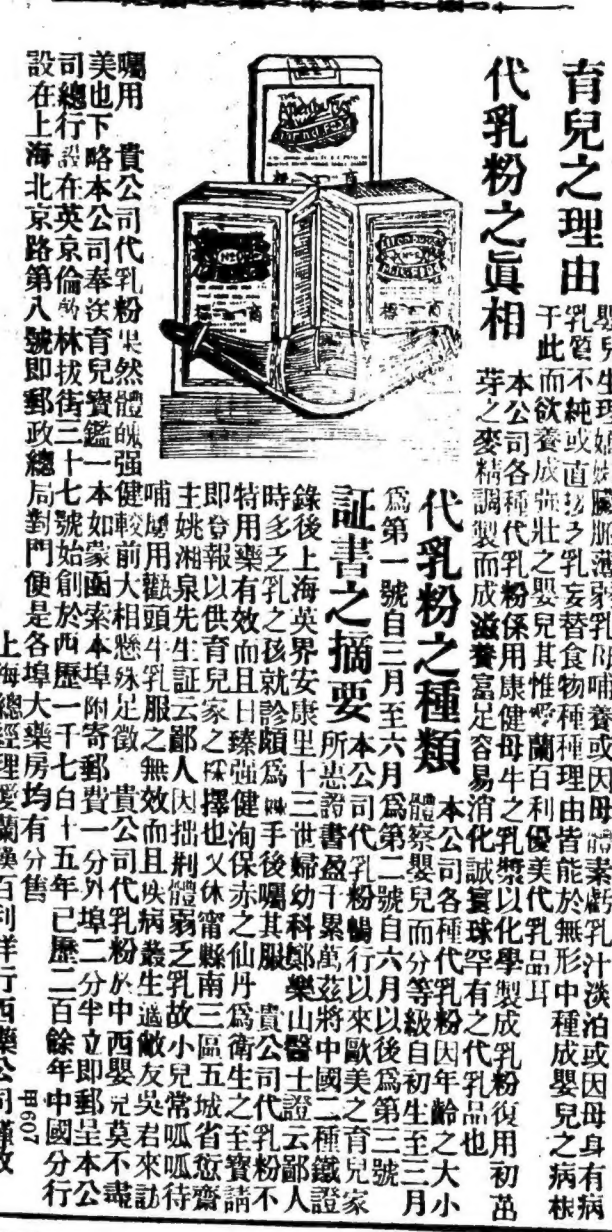 育兒之理由
嬰兒生理嬌嫩臟腑薄弱乳母哺養或因母體素虧乳汁淡泊或因母身有病
乳質不純或直接乏乳妄替食物種種理由皆能於無形中種成嬰兒之病根
于此而欲養成強壯之嬰兒其惟愛蘭百利優美代乳品耳
代乳粉之眞相
本公司各種代乳粉係用康健母牛之乳漿以化學製成乳粉復用初茁
芽之麥精調製而成滋養富足容易消化誠寰球罕有之代乳品也
代乳粉之種類
本公司各種代乳粉因年齡之大小
體察嬰兒而分等級自初生至三月
爲第一號自三月至六月爲第二號自六月以後爲第三號
証書之摘要
本公司代乳粉暢行以來歐美之育兒家
所惠證書盈千累萬茲將中國二種鐵證
錄後上海英界安康里十三世婦幼科鄭樂山醫士證云鄙人
時多乏乳之孩就診頗爲棘手後囑其服 貴公司代乳粉不
特用藥有效而且日臻强健洵保赤之仙丹爲衛生之至寶請
即登報以供育兒家之採擇也又休甯縣南三區五城省愆齋
主姚湘泉先生証云鄙人因拙荆體弱乏乳故小兒常呱呱待
哺屢用鷹頭牛乳服之無效而且疾病叢生適敝友吳君來訪
囑用 貴公司代乳粉果然體魄强健較前大相懸殊足徵 貴公司代乳粉於中西嬰兒莫不盡
美也下略本公司奉送育兒寶鑑一本如蒙函索本埠附寄郵費一分外埠二分半立即郵呈本公
司總行設在英京倫敦林拔街三十七號始創於西歷一千七百十五年已歷二百餘年中國分行
設在上海北京路第八號即郵政總局對門便是各埠大藥房均有分售
上海總經理愛蘭漢百利洋行西藥公司謹啟
甲607
THE
No 1
No 2
商標
商標
商標